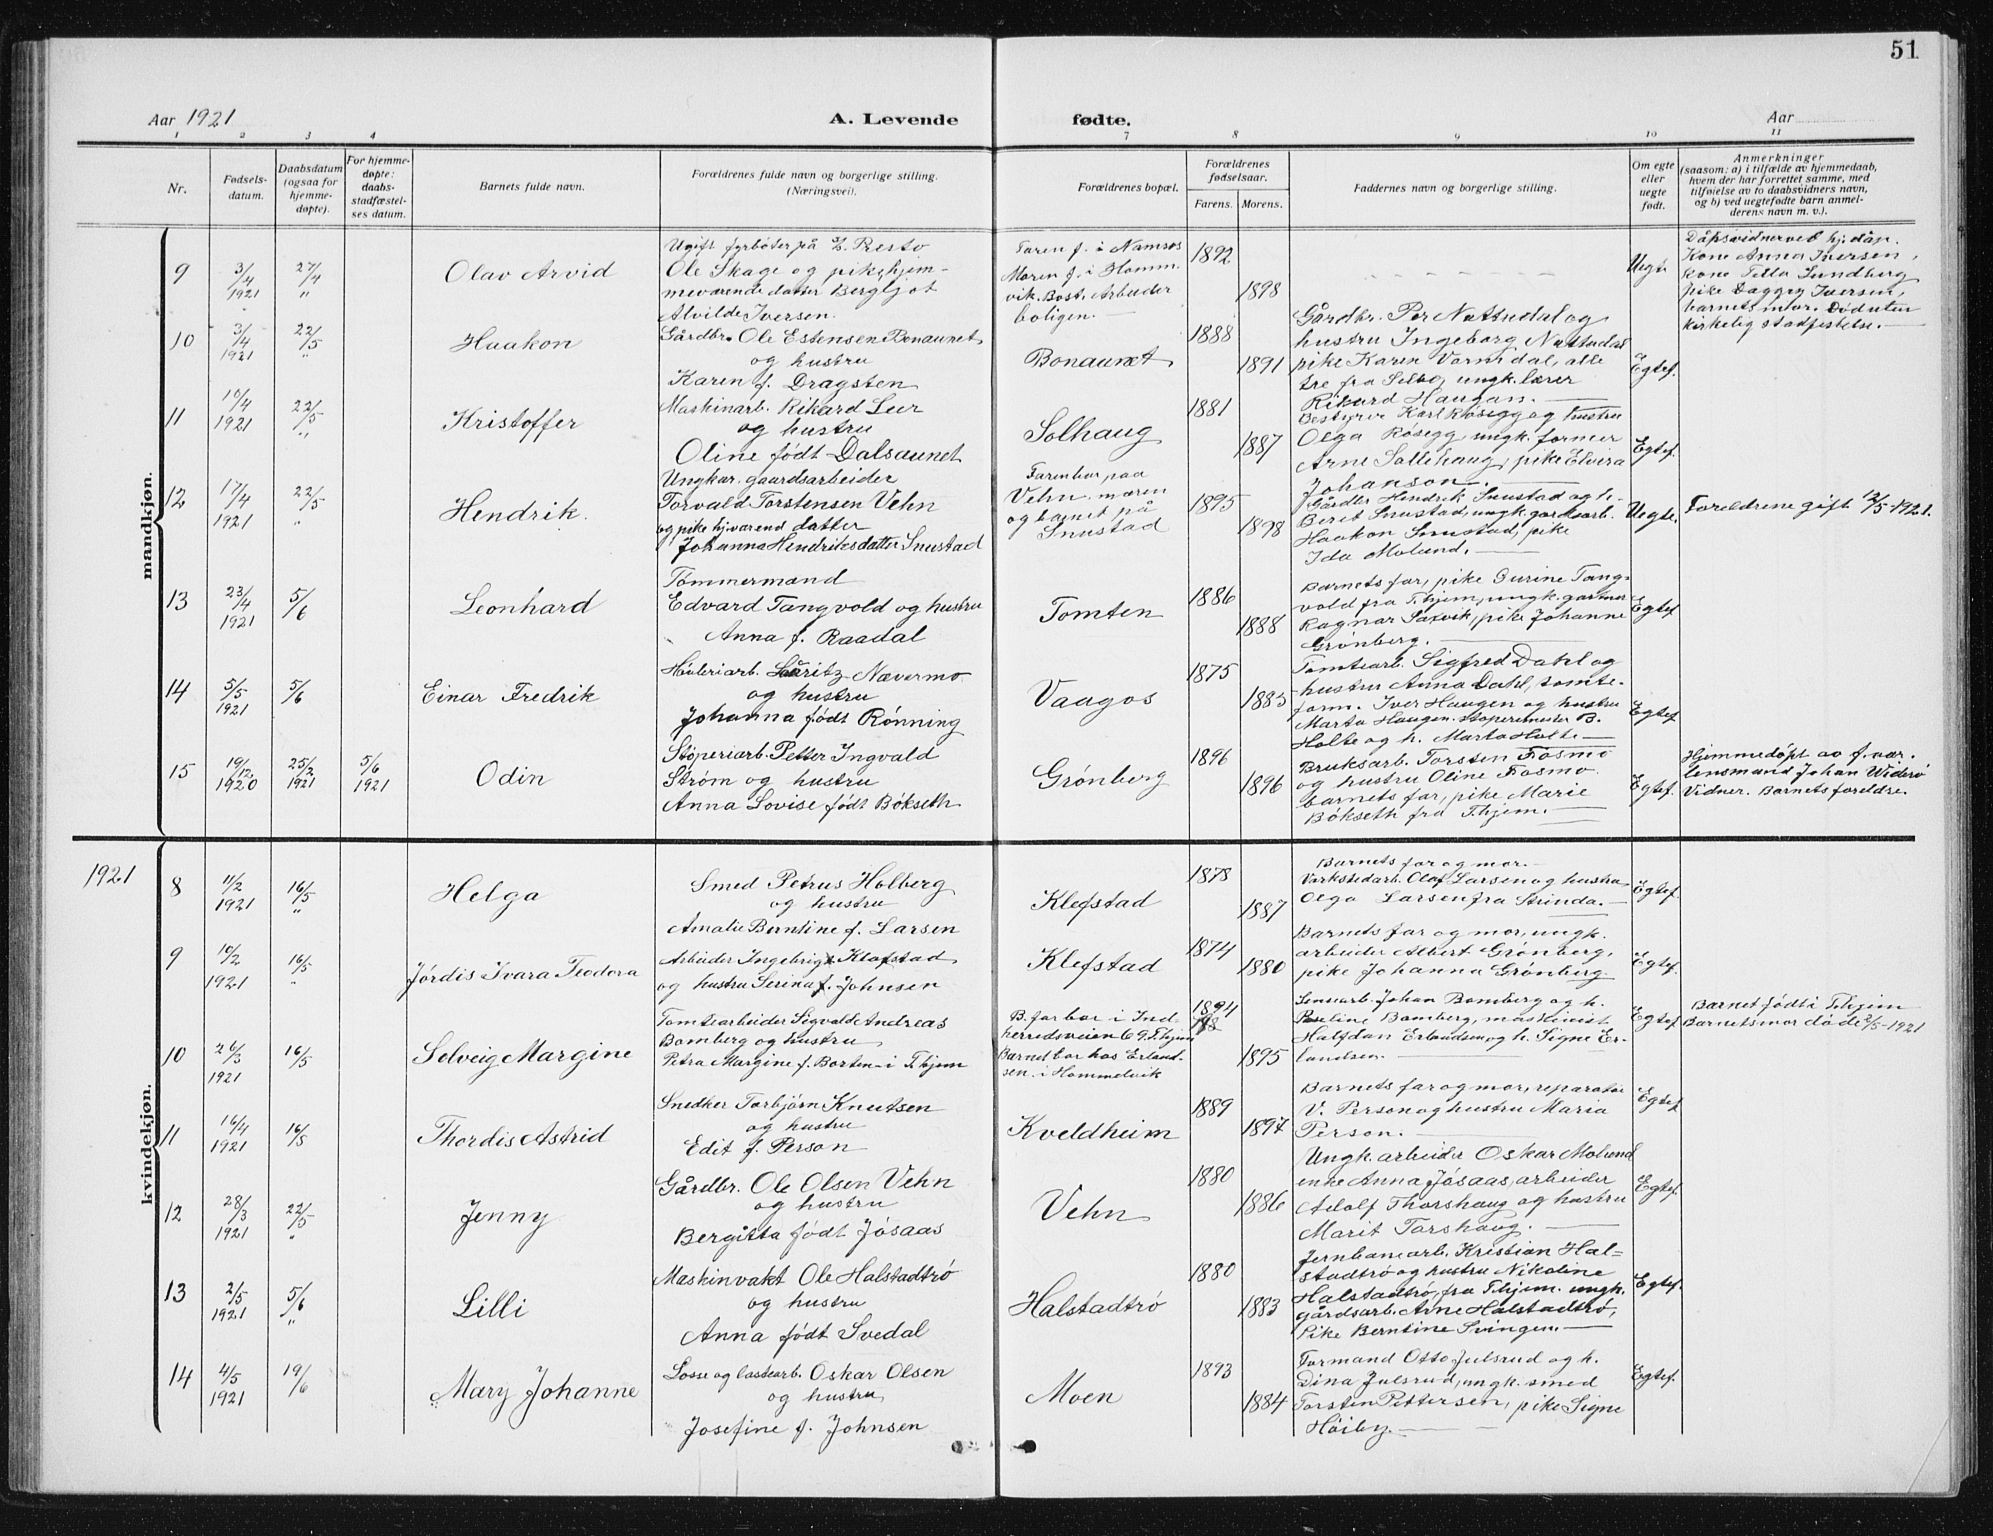 51
Aar 1921
A. Levende fødte.
Aar
1 2 3 4 7 8 9 10 11
Nr.
Fødsels-
datum.
Daabsdatum
(ogsaa for
hjemme-
døpte).
For hjemme-
døpte:
daabs-
stadfæstel-
ses datum.
Barnets fulde navn.
Forældrenes fulde navn og borgerlige stilling.
(Næringsvei).
Forældrenes bopæl.
Forældrenes
fødselsaar.
Farens. Morens.
Faddernes navn og borgerlige stilling.
Om egte
eller
uegte
født.
Anmerkninger
(saasom: a) i tilfælde av hjemmedaab,
hvem der har forrettet samme, med
tilføielse av to daabsvidners navn,
og b) ved uegtefødte barn anmel-
derens navn m. v.).
mandkjøn.
9
3/4
1921
27/4
"
Olav Arvid
Ugift fyrbøter på
Ole Skage og pike, hjem-
meværende datter Bergljot
Alvilde Iversen.
Faren f. i Namsos
Moren f. i Homm.
vik. Bost. Arbeider
boligen.
1892
1898
Uegte
Dåpsvidner ved hj.dåp.
Kone Anna Iversen,
kone Tella Sundberg
pike Dagny Iversen,
barnets mor. Død uten
kirkelig stadfestelse.
10
3/4
1921
22/5
"
Haakon
Gårdbr. Ole Estensen Bonaunet
og hustru
Karen f. Dragsten
Bonaunet
1888
1891
Gårdbr. Per Næstudal og
hustru Ingeborg Næstudal
pike Karen Vormdal, alle
tre fra Selbo, ungk. lærer
Rikard Haugan.
Egtef.
11
10/4
1921
22/5
"
Kristoffer
Maskinarb. Rikard Leer
og hustru
Oline født Dalsaunet
Solhaug
1881
1887
Bestyrer Karl Rosegg og hustru
Olga Rosegg, ungk. former
Arne Sollihaug, pike Elvira
Johanson.
Egtef.
12
17/4
1921
22/5
"
Hendrik.
Ungkar. gaardsarbeider
Torvald Torstensen Vehn
og pike hjværend datter
Johanna Hendriksdatter Snustad
Faren bor paa
Vehn, moren
og barnet på
Snustad
1895
1898
Gårdbr Hendrik Snustad og h.
Beret Snustad, ungk. gårdsarb.
Haakon Snustad, pike
Ida Molund.
Uegte.
Foreldrene gift 12/5-1921.
13
23/4
1921
5/6
Leonhard
Tømmermand
Edvard Tangvold og hustru
Anna f. Raadal
Tomten
1886
1888
Barnets far, pike Gurine Tang-
vold fra T.hjem, ungk.
Ragnar Saxvik, pike Johanne
Grønberg.
Egtef
14
5/5
1921
5/6
Einar Fredrik
Høvleriarb. Lauritz Nævermo
og hustru
Johanna født Rønning
Vaagos
1875
1885
Tomtearb. Sigfred Dahl og
hustru Anna Dahl, tomte-
form. Iver Haugen og hustru
Marta Haugen. Støperimester B.
Holte og h. Marta Holte
Egtef
15
19/12
1920
25/2
1921
5/6
1921
Odin
Støperiarb. Petter Ingvald
Strøm og hustru
Anna Lovise født Bökseth
Grønberg
1896
1896
Bruksarb. Torsten Fosmo
og hustru Oline Fosmo.
barnets far, pike Marie
Bökseth fra T.hjem.
Egtef.
Hjemmedøpt av f.vær.
lensmand Johan Widerø
Vidner. Barnets foreldre.
1921
kvindekjøn.
8
11/2
1921
16/5
"
Helga
Smed Petrus Holberg
og hustru
Amalie Berntine f. Larsen
Klefstad
1878
1887
Barnets far og mor.
Verkstedarb. Olaf Larsen og hustru
Olga Larsen fra Strinda.
Egtef.
9
10/2
1921
16/5
"
Jórdis Ivara Teodora
Arbeider Ingebrigt Klefstad
og hustru Serina f. Johnsen
Klefstad
1874
1880
Barnets far og mor, ungk.
arbeider Albert Grønberg,
pike Johanna Grønberg
Egtef.
10
26/3
1921
16/5
Solveig Margine
Tomtearbeider Sigvald Andreas
Bomberg og hustru
Petra Margine f. Borten i T.hjem
B. far bor i Ind-
herredsveien 69 T.hjem
Barnet bor hos Erland-
sen i Hommelvik
1894
1895
Johan Bomberg og h.
Bomberg, maskinist
Halfdan Erlandsen og h. Signe Er-
landsen.
Egtef
Barnet født i T.hjem
Barnets mor døde 2/5-1921
11
16/4
1921
16/5
Thordis Astrid
Snedker Torbjørn Knutsen
og hustru
Edit f. Person
Kveldheim
1889
1897
Barnets far og mor, reparatør
V. Person og hustru Maria
Person.
Egtef
12
28/3
1921
22/5
"
Jenny
Gårdbr. Ole Olsen Vehn
og hustru
Bergitta født Jósaas
Vehn
1880
1886
Ungk. arbeider Oskar Molund
enke Anna Jósaas, arbeider
Adolf Thorshaug og hustru
Marit Torshaug.
Egtef.
13
2/5
1921
5/6
"
Lilli
Maskinvakt Ole Halstadtrö
og hustru
Anna født Svedal
Halstadtrö
1880
1883
Jernbanearb. Kristian Hal-
stadtrö og hustru Nikoline
Halstadtrö, fra T.hjem. ungk.
gårdsarb. Arne Halstadtrö,
Pike Berntine Svingen.
Egtef.
14
4/5
1921
19/6
Mary Johanne
Losse og lastearb. Oskar Olsen
og hustru
Josefine f. Johnsen
Moen
1893
1884
Formand Otto Julsrud og h.
Dina Julsrud, ungk. smed
Torsten Pettersen, pike Signe
Höiby.
Egtef.